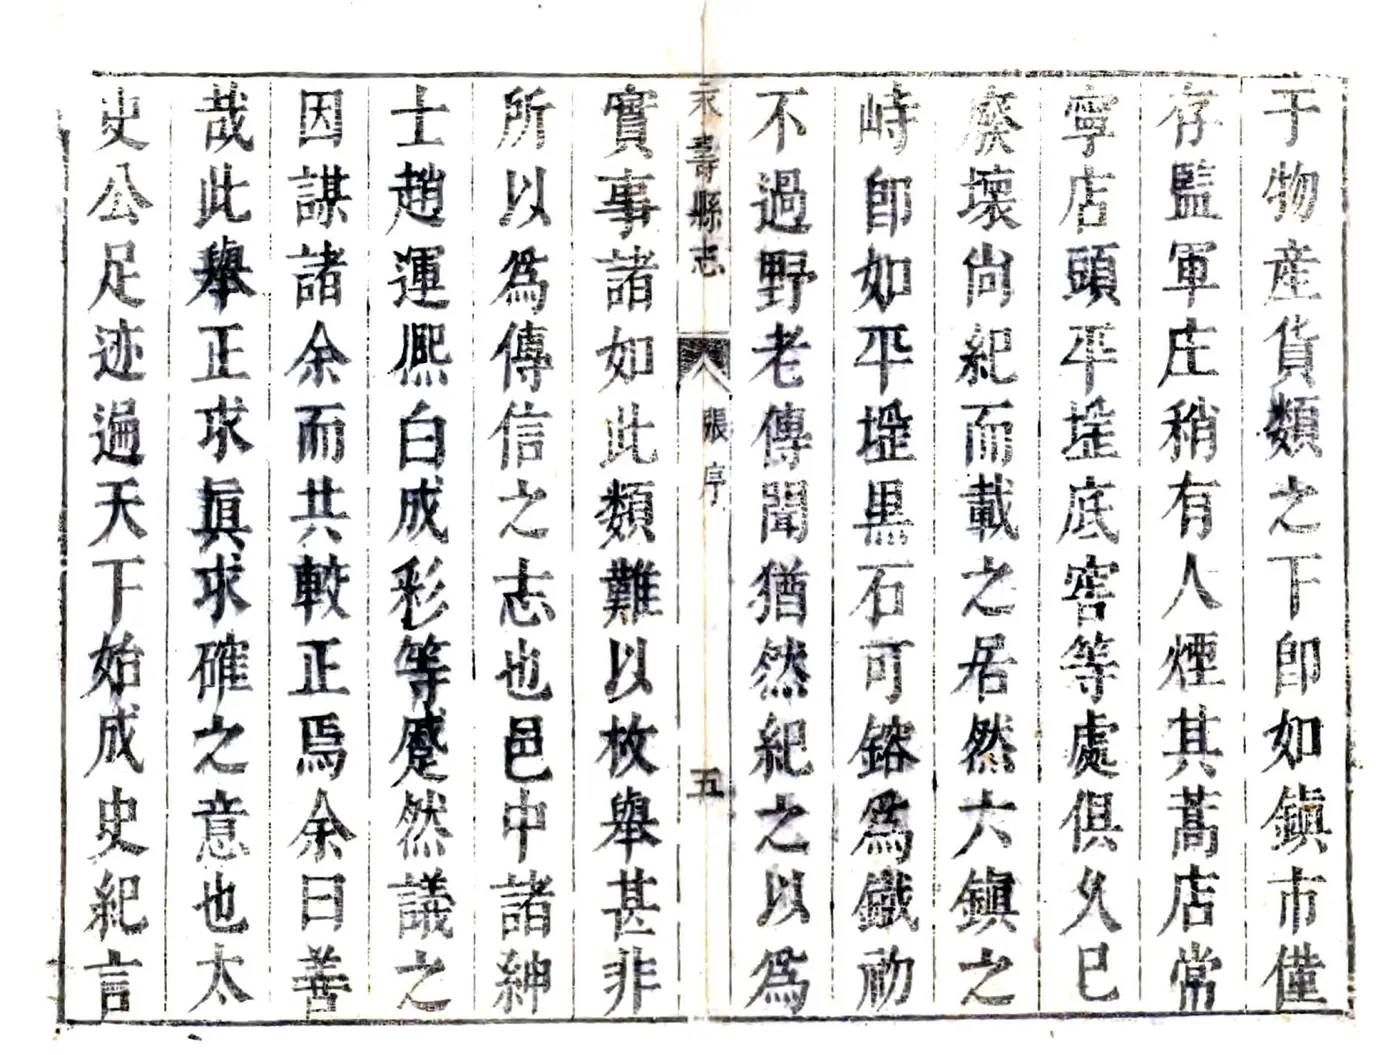 于物產貨類之下卽如鎭市僅
存監軍庄稍有人煙其蒿店常
寧店頭平埊底窖等處俱久已
廢壞尙紀而載之居然六鎭之
峙卽如平埊黑石可鎔爲鐵初
不過野老傳聞猶然紀之以爲
永壽縣志
張序
五
實事諸如此類難以枚舉甚非
所以爲傳信之志也邑中諸紳
士趙運熈白成彩等蹙然議之
因謀諸余而共較正焉余曰善
哉此舉正求眞求確之意也太
史公足迹遍天下始成史紀言